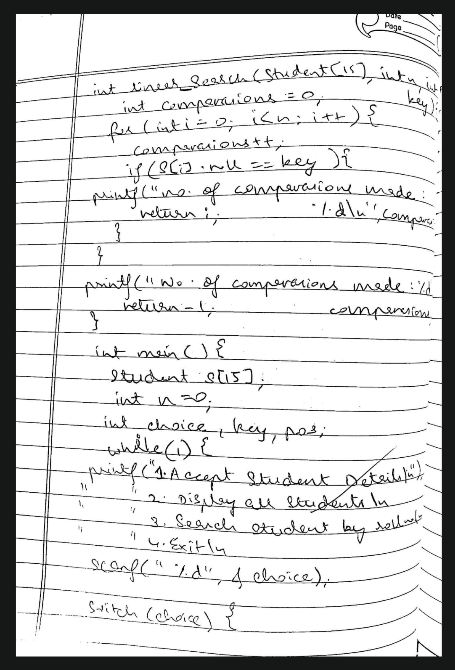 Date
Page
int linear_Search (Student [15], int n, int
key);
int comparisions = 0;
for (int i = 0; i<n; i++) {
comparisions++;
if (S[i].null == key ) {
printf("no. of comparisions made :
return i; %d\n", compari
}
}
printf("No. of comparisions made : %d
return -1; comparisions
}
int main () {
Student S[15];
int n =0;
int choice, key, pos;
while(1) {
printf("1.Accept Student Details\n")
" " 2. Display all Students \n
" " 3. Search student by rollno
" " 4. Exit \n
scanf(" %d", & choice);
Switch (choice) {